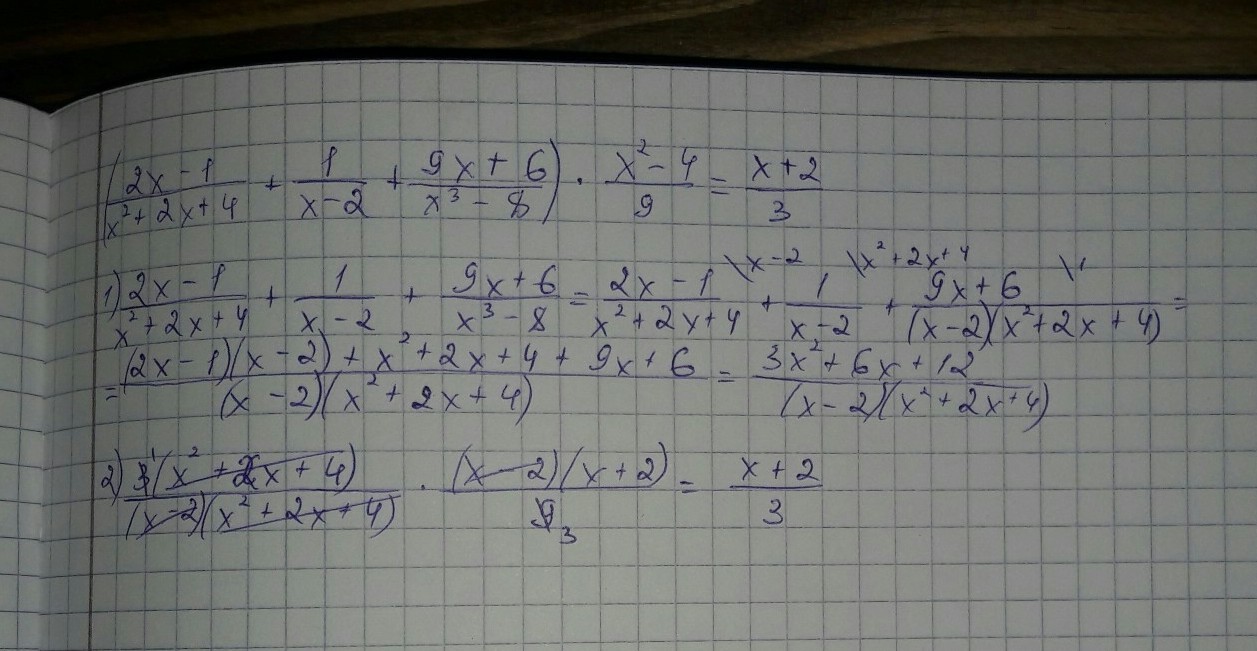 ((2x-1)/(x²+2x+4) + 1/(x-2) + (9x+6)/(x³-8)) · (x²-4)/9 = (x+2)/3
\x-2 \x²+2x+4 \1
1) (2x-1)/(x²+2x+4) + 1/(x-2) + (9x+6)/(x³-8) = (2x-1)/(x²+2x+4) + 1/(x-2) + (9x+6)/((x-2)(x²+2x+4)) =
= ((2x-1)(x-2) + x²+2x+4 + 9x+6)/((x-2)(x²+2x+4)) = (3x²+6x+12)/((x-2)(x²+2x+4))
2) 3¹(x²+2x+4)/((x-2)(x²+2x+4)) · (x-2)(x+2)/9₃ = (x+2)/3